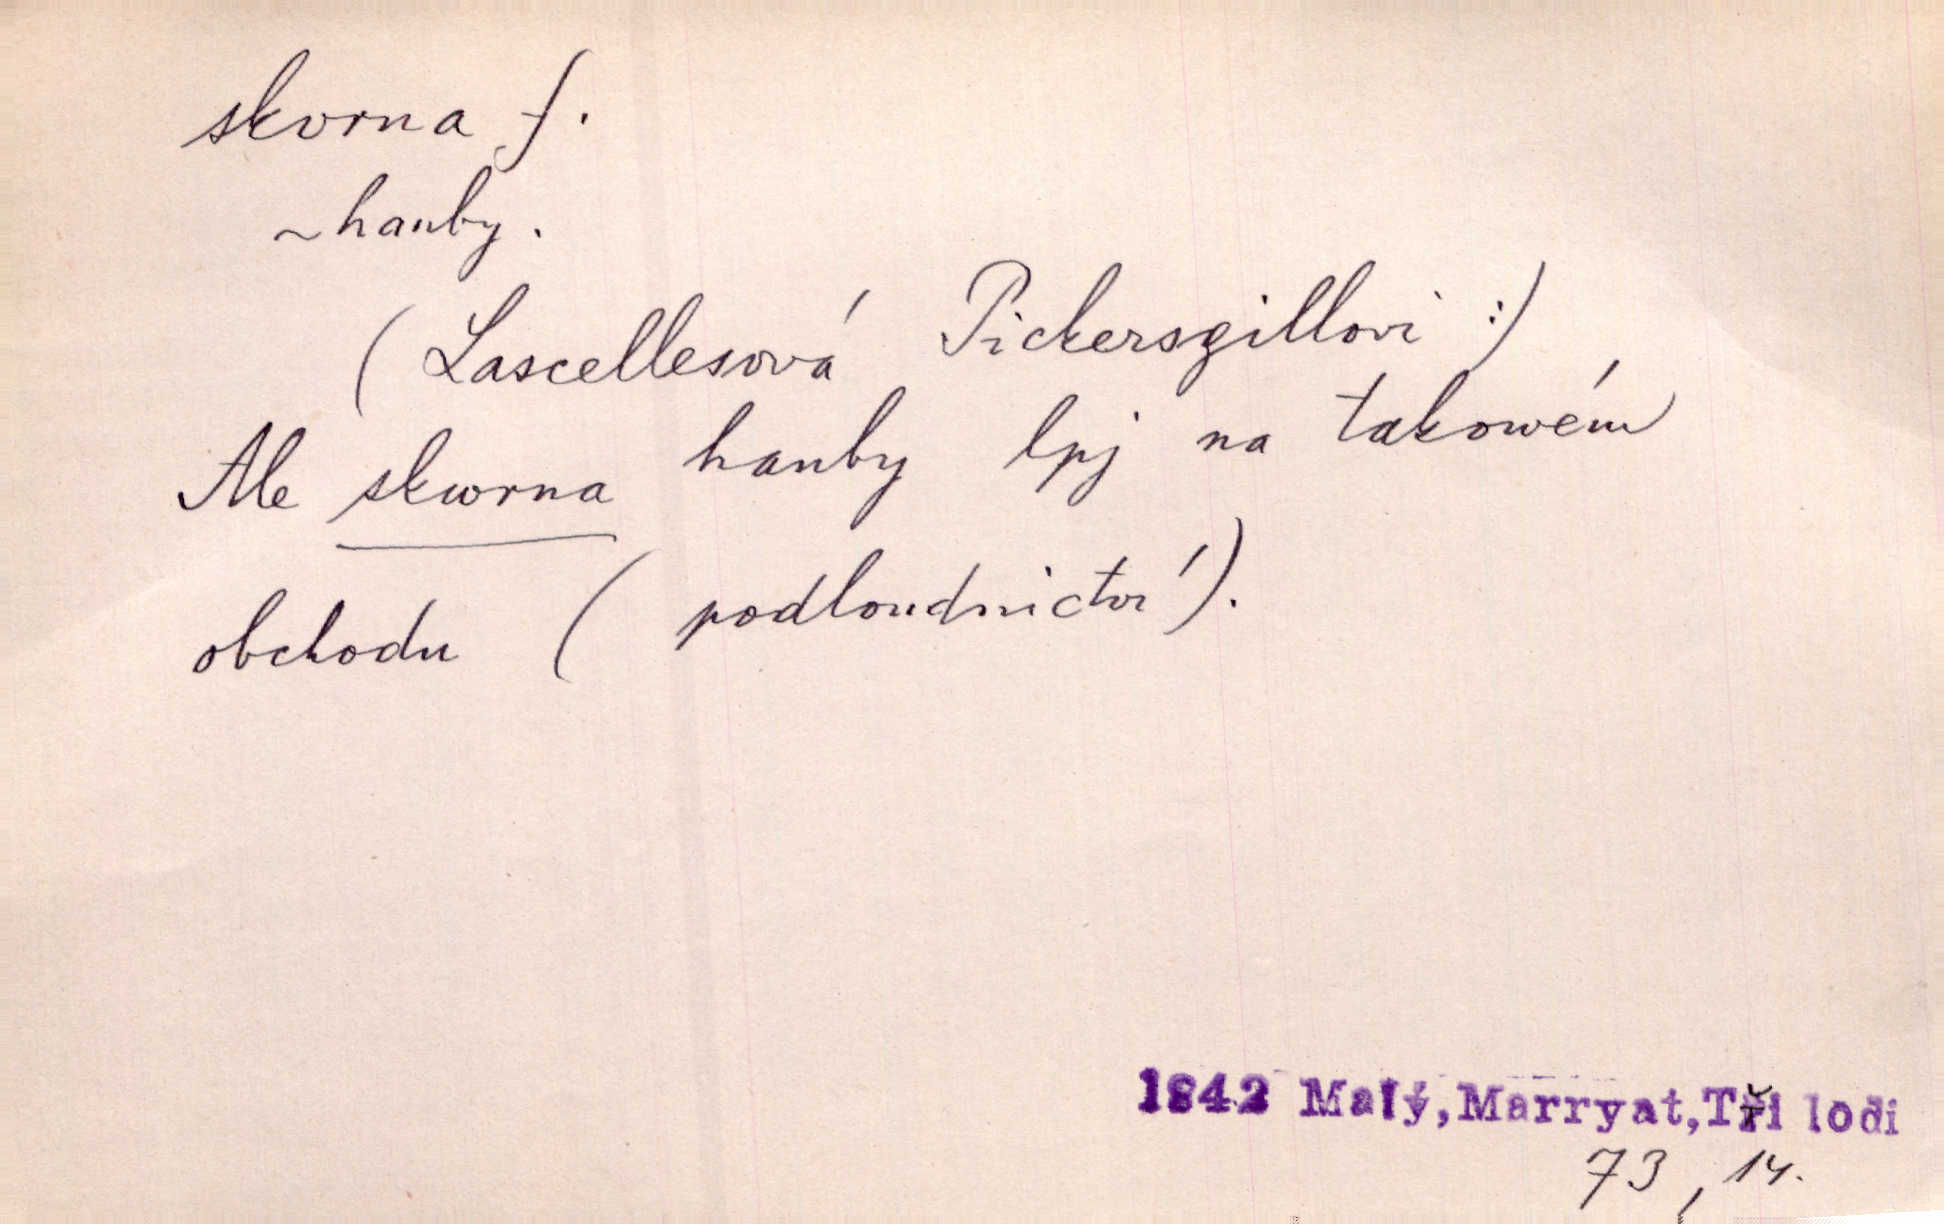 skvrna f.
~hanby.
(Lascellesová Pickersgillovi:)
Ale skwrna hanby lpj na takowém
obchodu (podloudnictví).
1842 Malý,Marryat,Tři lodi
73, 14.